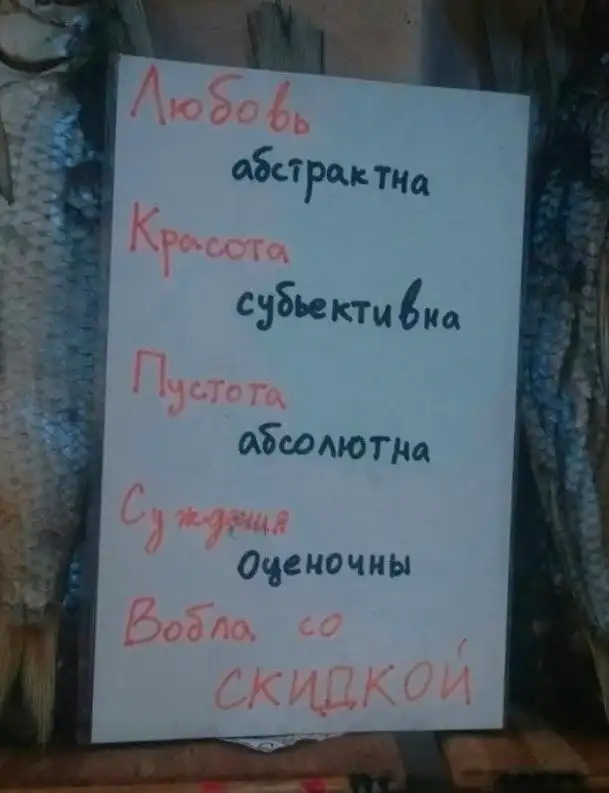 Любовь
абстрактна
Красота
субьективна
Пустота
абсолютна
Суждения
оценочны
Вобла со
скидкой